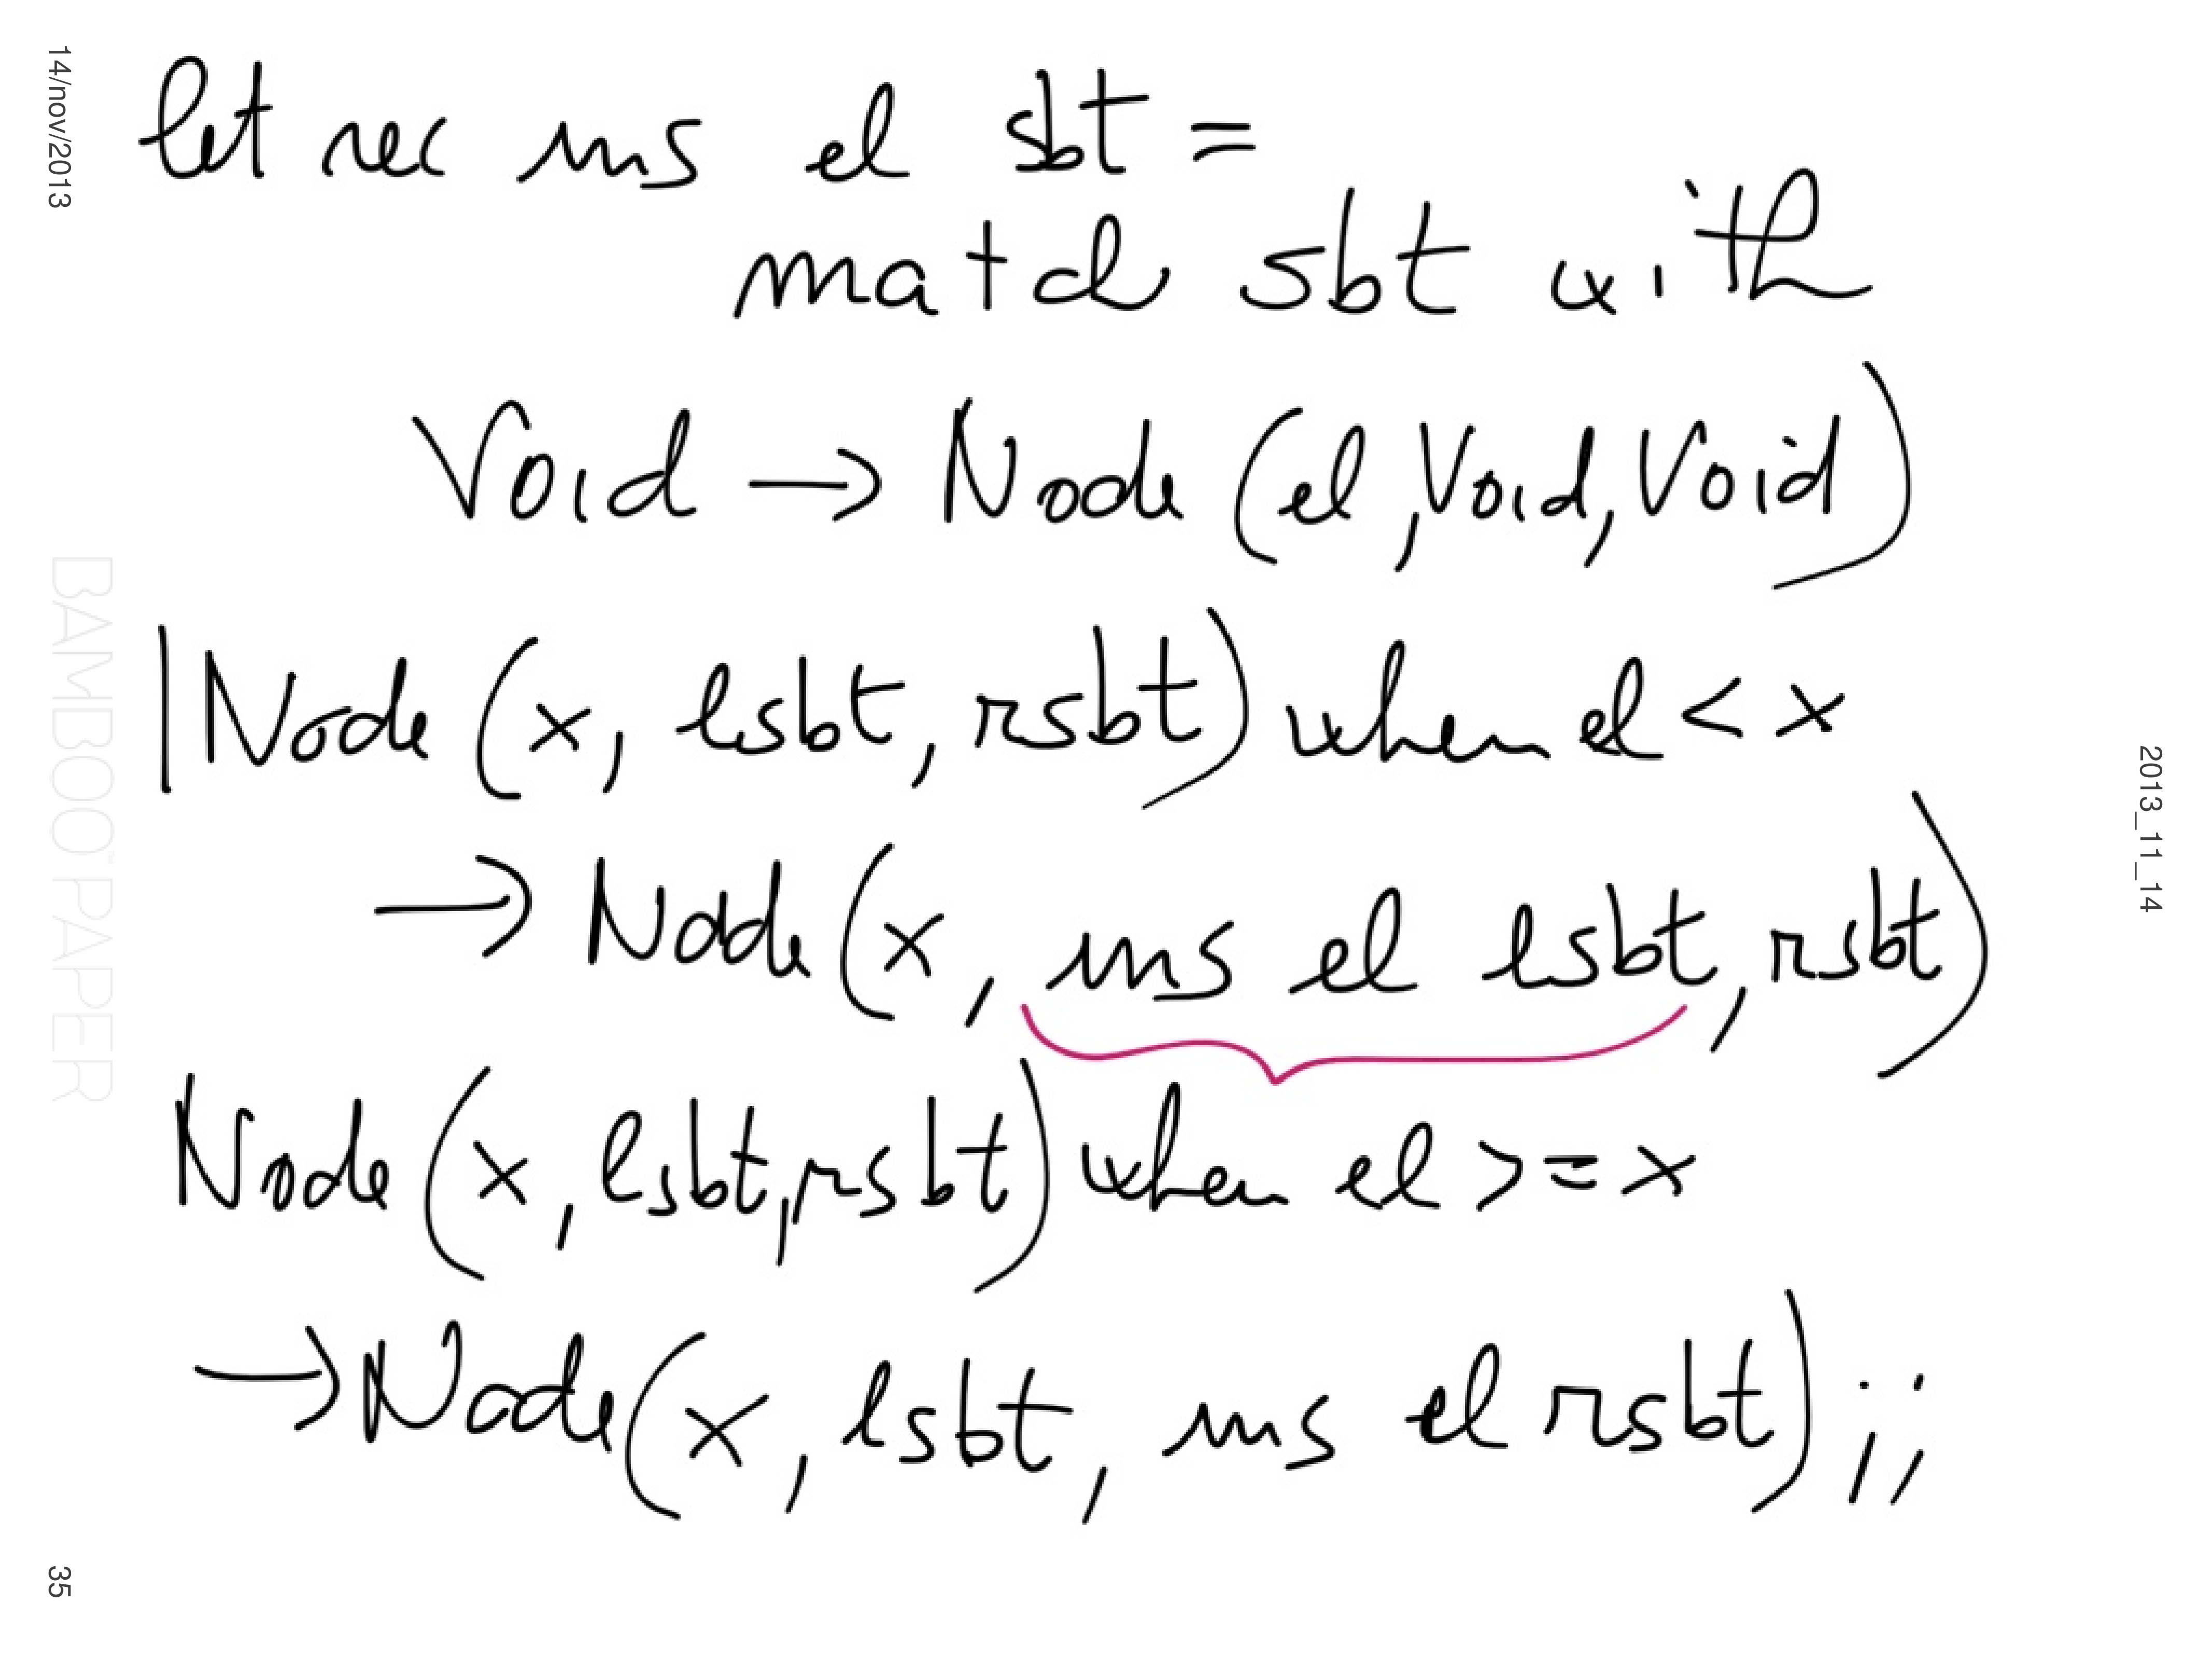 let rec ins el sbt =
match sbt with
Void → Node (el, Void, Void)
| Node (x, lsbt, rsbt) when el < x
→ Node (x, ins el lsbt, rsbt)
Node (x, lsbt, rsbt) when el >= x
→ Node (x, lsbt, ins el rsbt) ;;
14/nov/2013
BAMBOO PAPER
35
2013_11_14